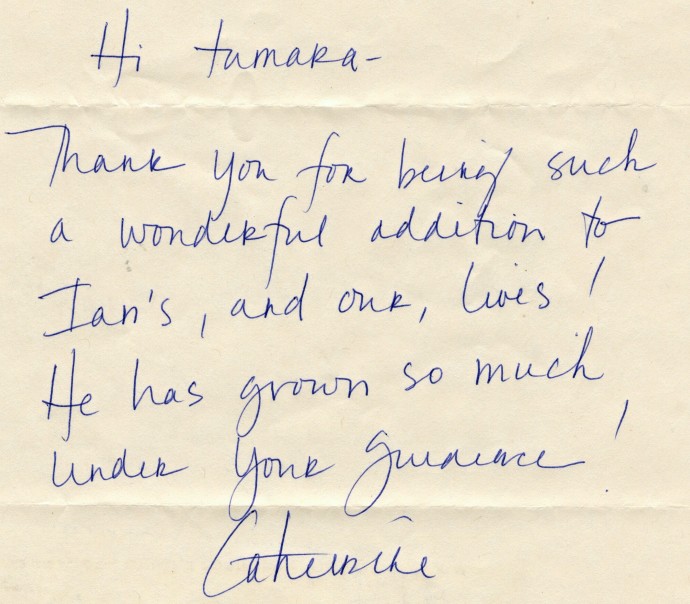 Hi Tamara-
Thank you for being such
a wonderful addition to
Ian's, and our, lives!
He has grown so much
under your guideance!
Catherine